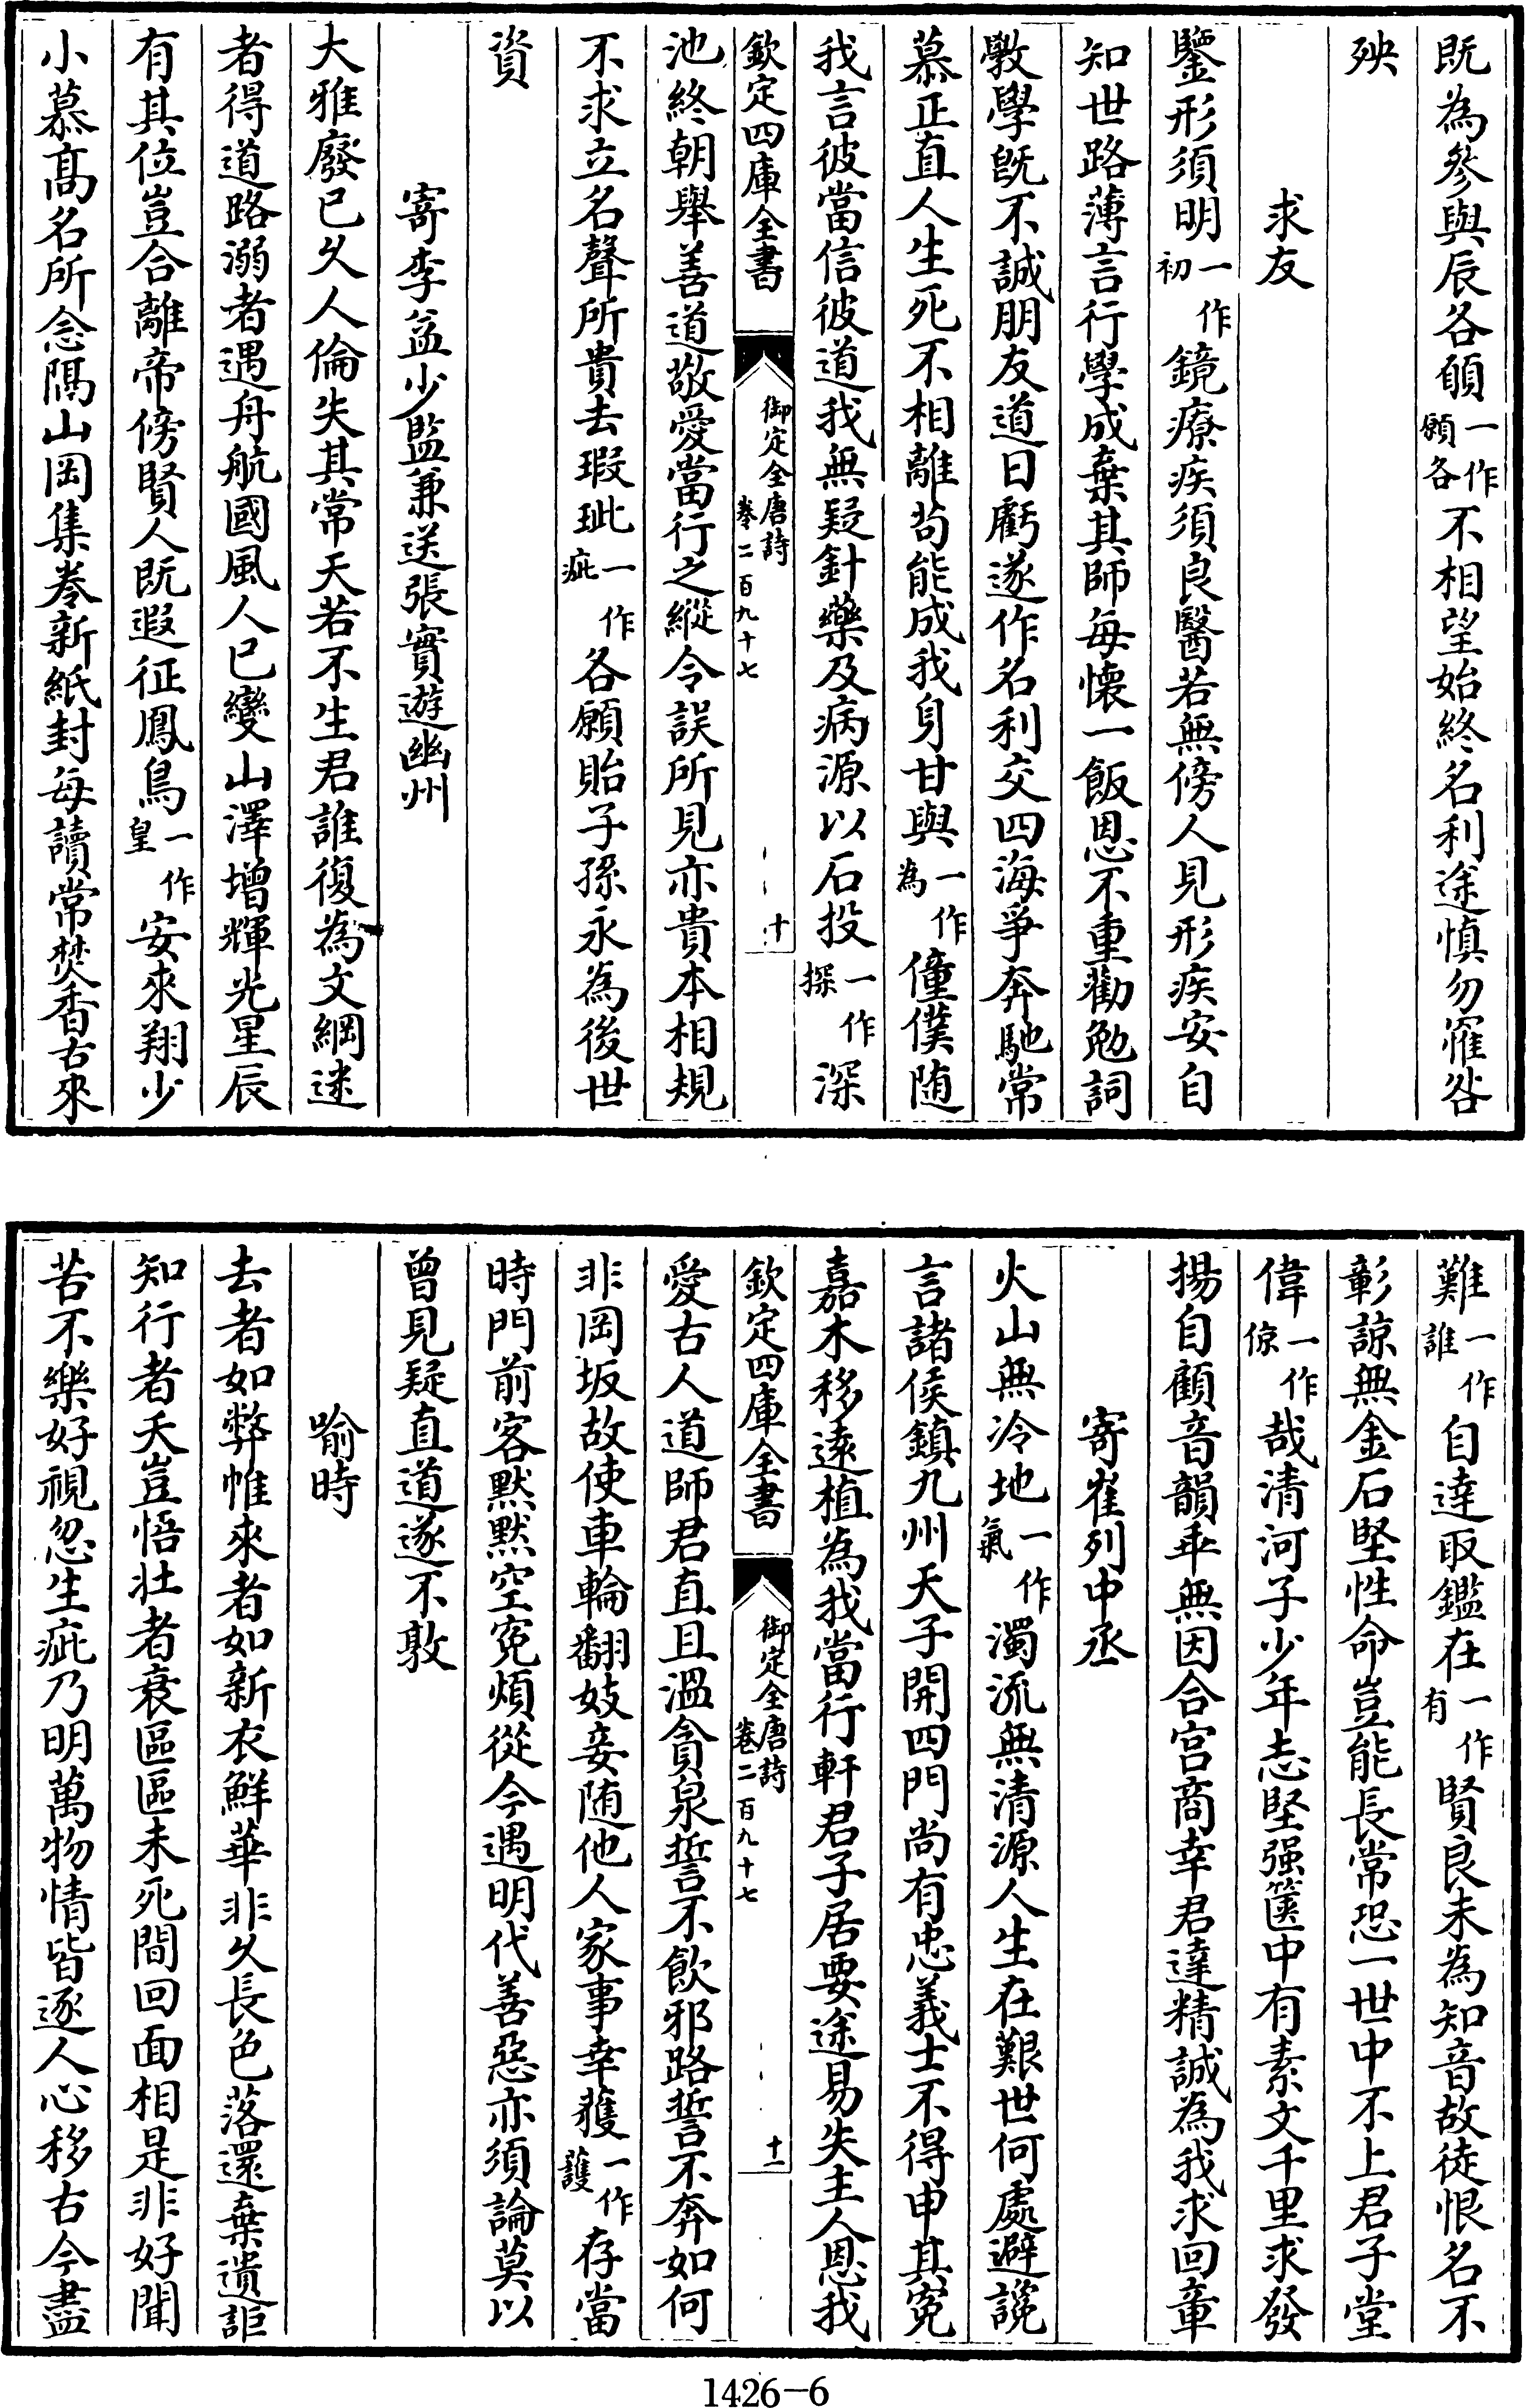 既為參與辰各願一作願各不相望始終名利途慎勿罹咎
殃
求友
鑒形須明一作初鏡療疾須良醫若無傍人見形疾安自
知世路薄言行學成棄其師每懷一飯恩不重勸勉詞
教學旣不誠朋友道日虧遂作名利交四海爭奔馳常
慕正直人生死不相離茍能成我身甘與一作為僮僕隨
我言彼當信彼道我無疑針藥及病源以石投一作探深
欽定四庫全書
御定全唐詩
卷二百九十七
十
池終朝舉善道敬愛當行之縱令誤所見亦貴本相規
不求立名聲所貴去瑕玼一作疵各願貽子孫永為後世
資
寄李益少監兼送張實遊幽州
大雅廢已久人倫失其常天若不生君誰復為文綱迷
者得道路溺者遇舟航國風人已變山澤增輝光星辰
有其位豈合離帝傍賢人既遐征鳳鳥一作皇安來翔少
小慕高名所念隔山岡集卷新紙封每讀常焚香古來
難一作誰自達取鑑在一作有賢良未為知音故徒恨名不
彰諒無金石堅性命豈能長常恐一世中不上君子堂
偉一作倞哉清河子少年志堅强篋中有素文千里求發
揚自顧音韻乖無因合宫商幸君達精誠為我求回章
寄崔列中丞
火山無冷地一作氣濁流無清源人生在艱世何處避讒
言諸侯鎮九州天子開四門尚有忠義士不得申其寃
嘉木移遠植為我當行軒君子居要途易失主人恩我
欽定四庫全書
御定全唐詩
卷二百九十七
十一
愛古人道師君直且溫貪泉誓不飲邪路誓不奔如何
非岡坂故使車輪翻妓妾隨他人家事幸獲一作護存當
時門前客默默空寃煩從今遇明代善惡亦須論莫以
曾見疑直道遂不敦
喻時
去者如弊帷來者如新衣鮮華非久長色落還棄遺詎
知行者夭豈悟壯者衰區區未死間回面相是非好聞
苦不樂好視忽生疵乃明萬物情皆逐人心移古今盡
1426-6